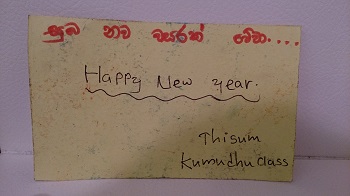 සුබ නව වසරක් වේවා....
Happy New year.
Thisum
Kumudhu Class